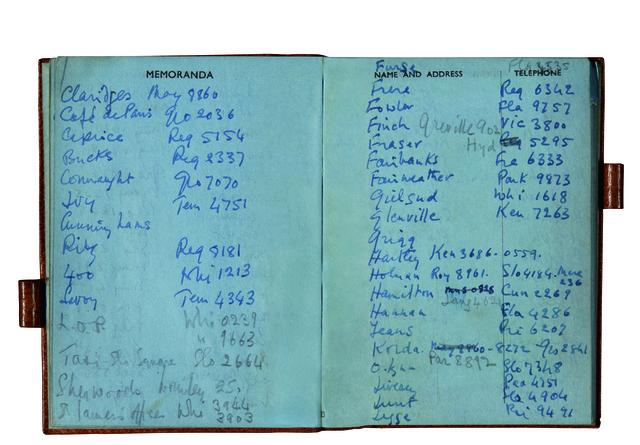 MEMORANDA
Claridges May 8860
Café de Paris Gro 2036
Caprice Reg 5154
Bucks Reg 2337
Connaught Gro 7070
Ivy Tem 4751
Cunninghams
Ritz Reg 8181
400 Whi 1213
Savoy Tem 4343
Whi 0239
" 9663
Taxi Slo 2664
Sherwoods 25
St James's Whi 3944
3903
NAME AND ADDRESS TELEPHONE
Furse
Frere Reg 6342
Fowler Fla 9757
Finch Greville 902 Vic 3800
Fraser Hyd 5295
Fairbanks Fre 6333
Fairweather Park 9873
Guilsud Whi 1618
Glenville Ken 7263
Grigg
Hartley Ken 3686 - 0559.
Holman Roy 8961. Slo 4184.
236
Hamilton Cun 2269
Hannan Fla 4286
Jeans Pri 6202
Korda 8272 Gro 2841
Par 8892
Slo 7348
Fla 4904
Pri 9491